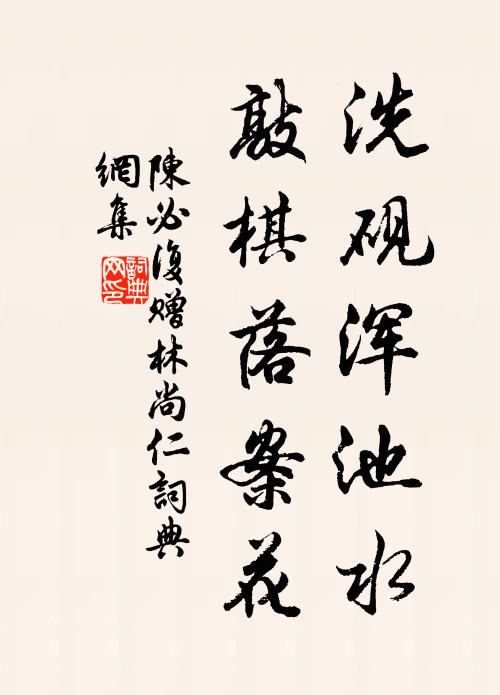 洗砚浑池水
敲棋落案花
陳必復贈林尚仁詞典
網集
詞典
网印